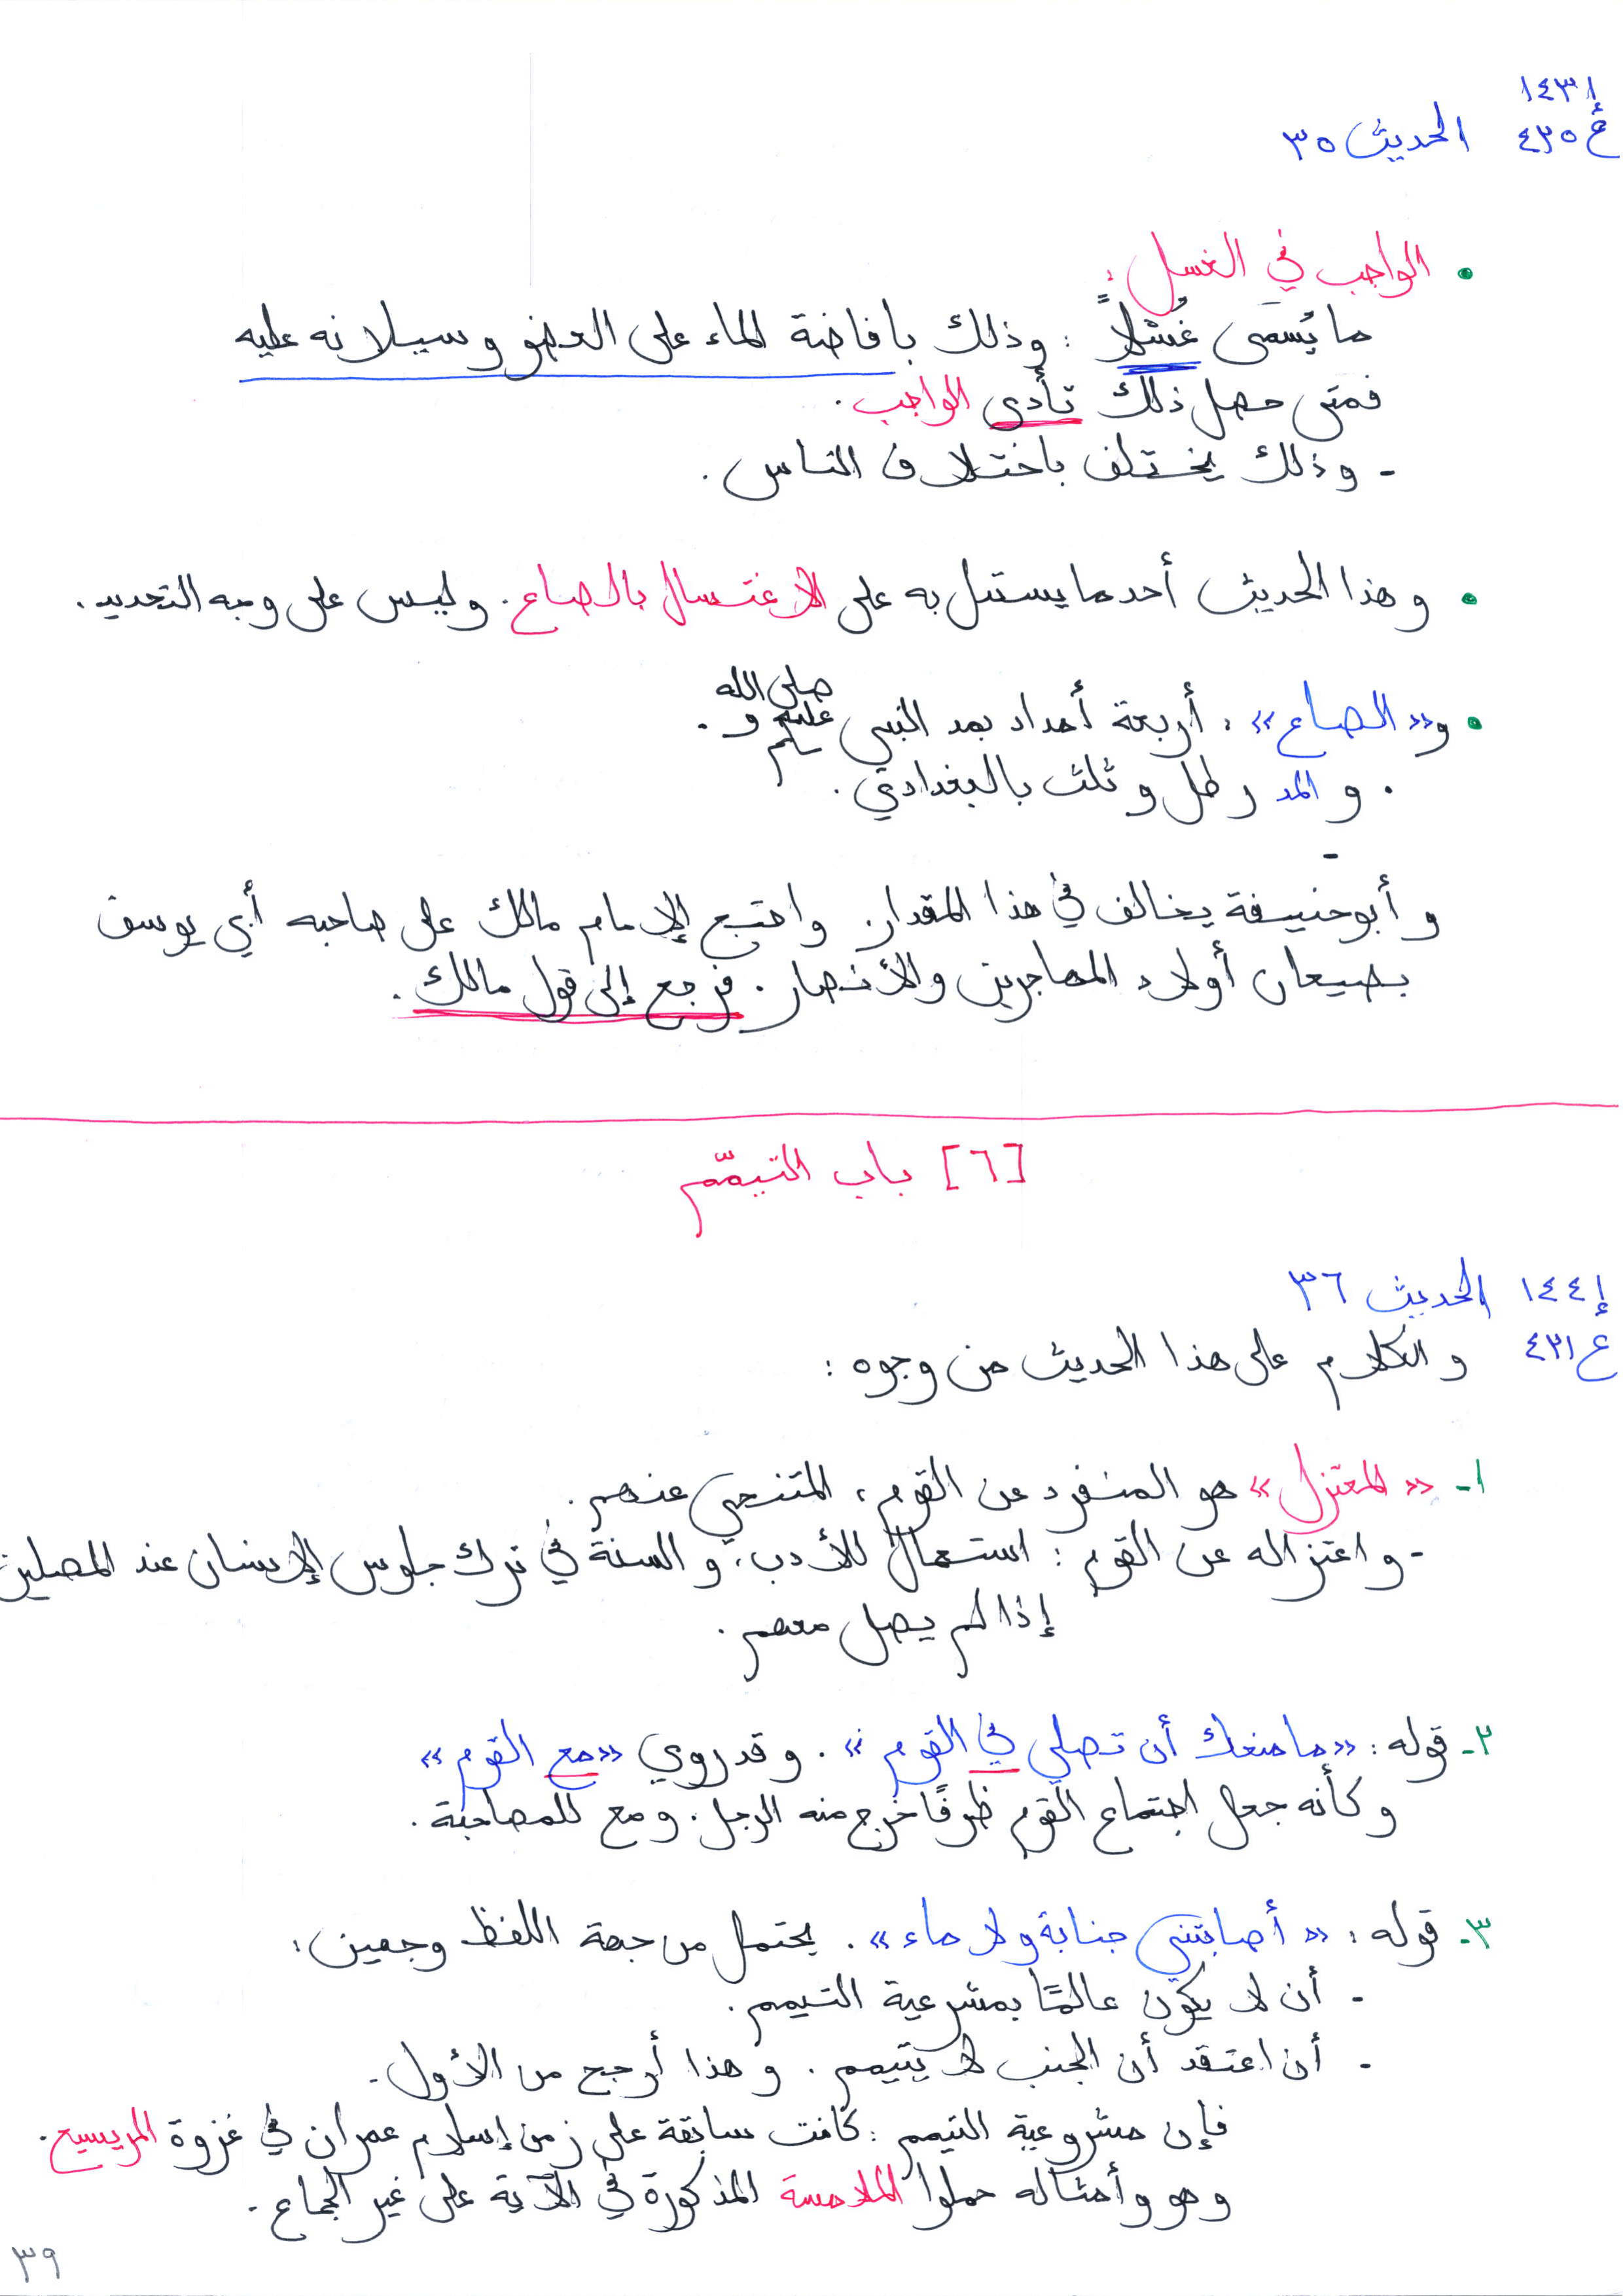 إ ١٤٣١
ع ٤٢٥ الحديث ٣٥
• الواجب في الغسل:
ما يُسَمَّى غُسْلاً: وذلك بافاضة الماء على العضو وسيلانه عليه
فمتى حصل ذلك تأدى الواجب.
- وذلك يختلف باختلاف الناس.
• وهذا الحديث أحد ما يستدل به على الاغتسال بالصاع. وليس على وجه التحديد.
• و«الصاع»: أربعة أمداد بمد النبي صلى الله عليه وسلم.
• والمد رطل وثلث بالبغدادي.
-
وأبو حنيفة يخالف في هذا المقدار. واحتج الإمام مالك على صاحبه أبي يوسف
بصيعان أولاد المهاجرين والأنصار. فرجع إلى قول مالك.
[٦] باب التيمّم
إ ١٤٤١ الحديث ٣٦
ع ٤٣١ والكلام على هذا الحديث من وجوه:
١- «المعتزل» هو المنفرد عن القوم، المتنحي عنهم.
- واعتزاله عن القوم: استعمال للأدب، والسنة في ترك جلوس الإنسان عند المصلين
إذا لم يصل معهم.
٢- قوله: «ما منعك أن تصلي في القوم». وقد روي «مع القوم»
وكأنه جعل اجتماع القوم ظرفًا خرج منه الرجل. ومع للمصاحبة.
٣- قوله: «أصابتني جنابة ولا ماء». يحتمل من جهة اللفظ وجهين:
- أن لا يكون عالمًا بمشرعية التيمم.
- أن اعتقد أن الجنب لا يتيمم. وهذا أرجح من الأول.
فإن مشروعية التيمم: كانت سابقة على زمن إسلام عمران في غزوة المريسيع.
وهو وأمثاله حملوا الملامسة المذكورة في الآية على غير الجماع.
٣٩